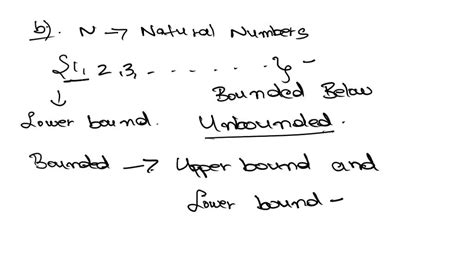 b). N → Natural Numbers
{1, 2, 3, . . . . . . . }
↓ Bounded Below
Lower bound. Unbounded.
Bounded → Upper bound and
Lower bound -